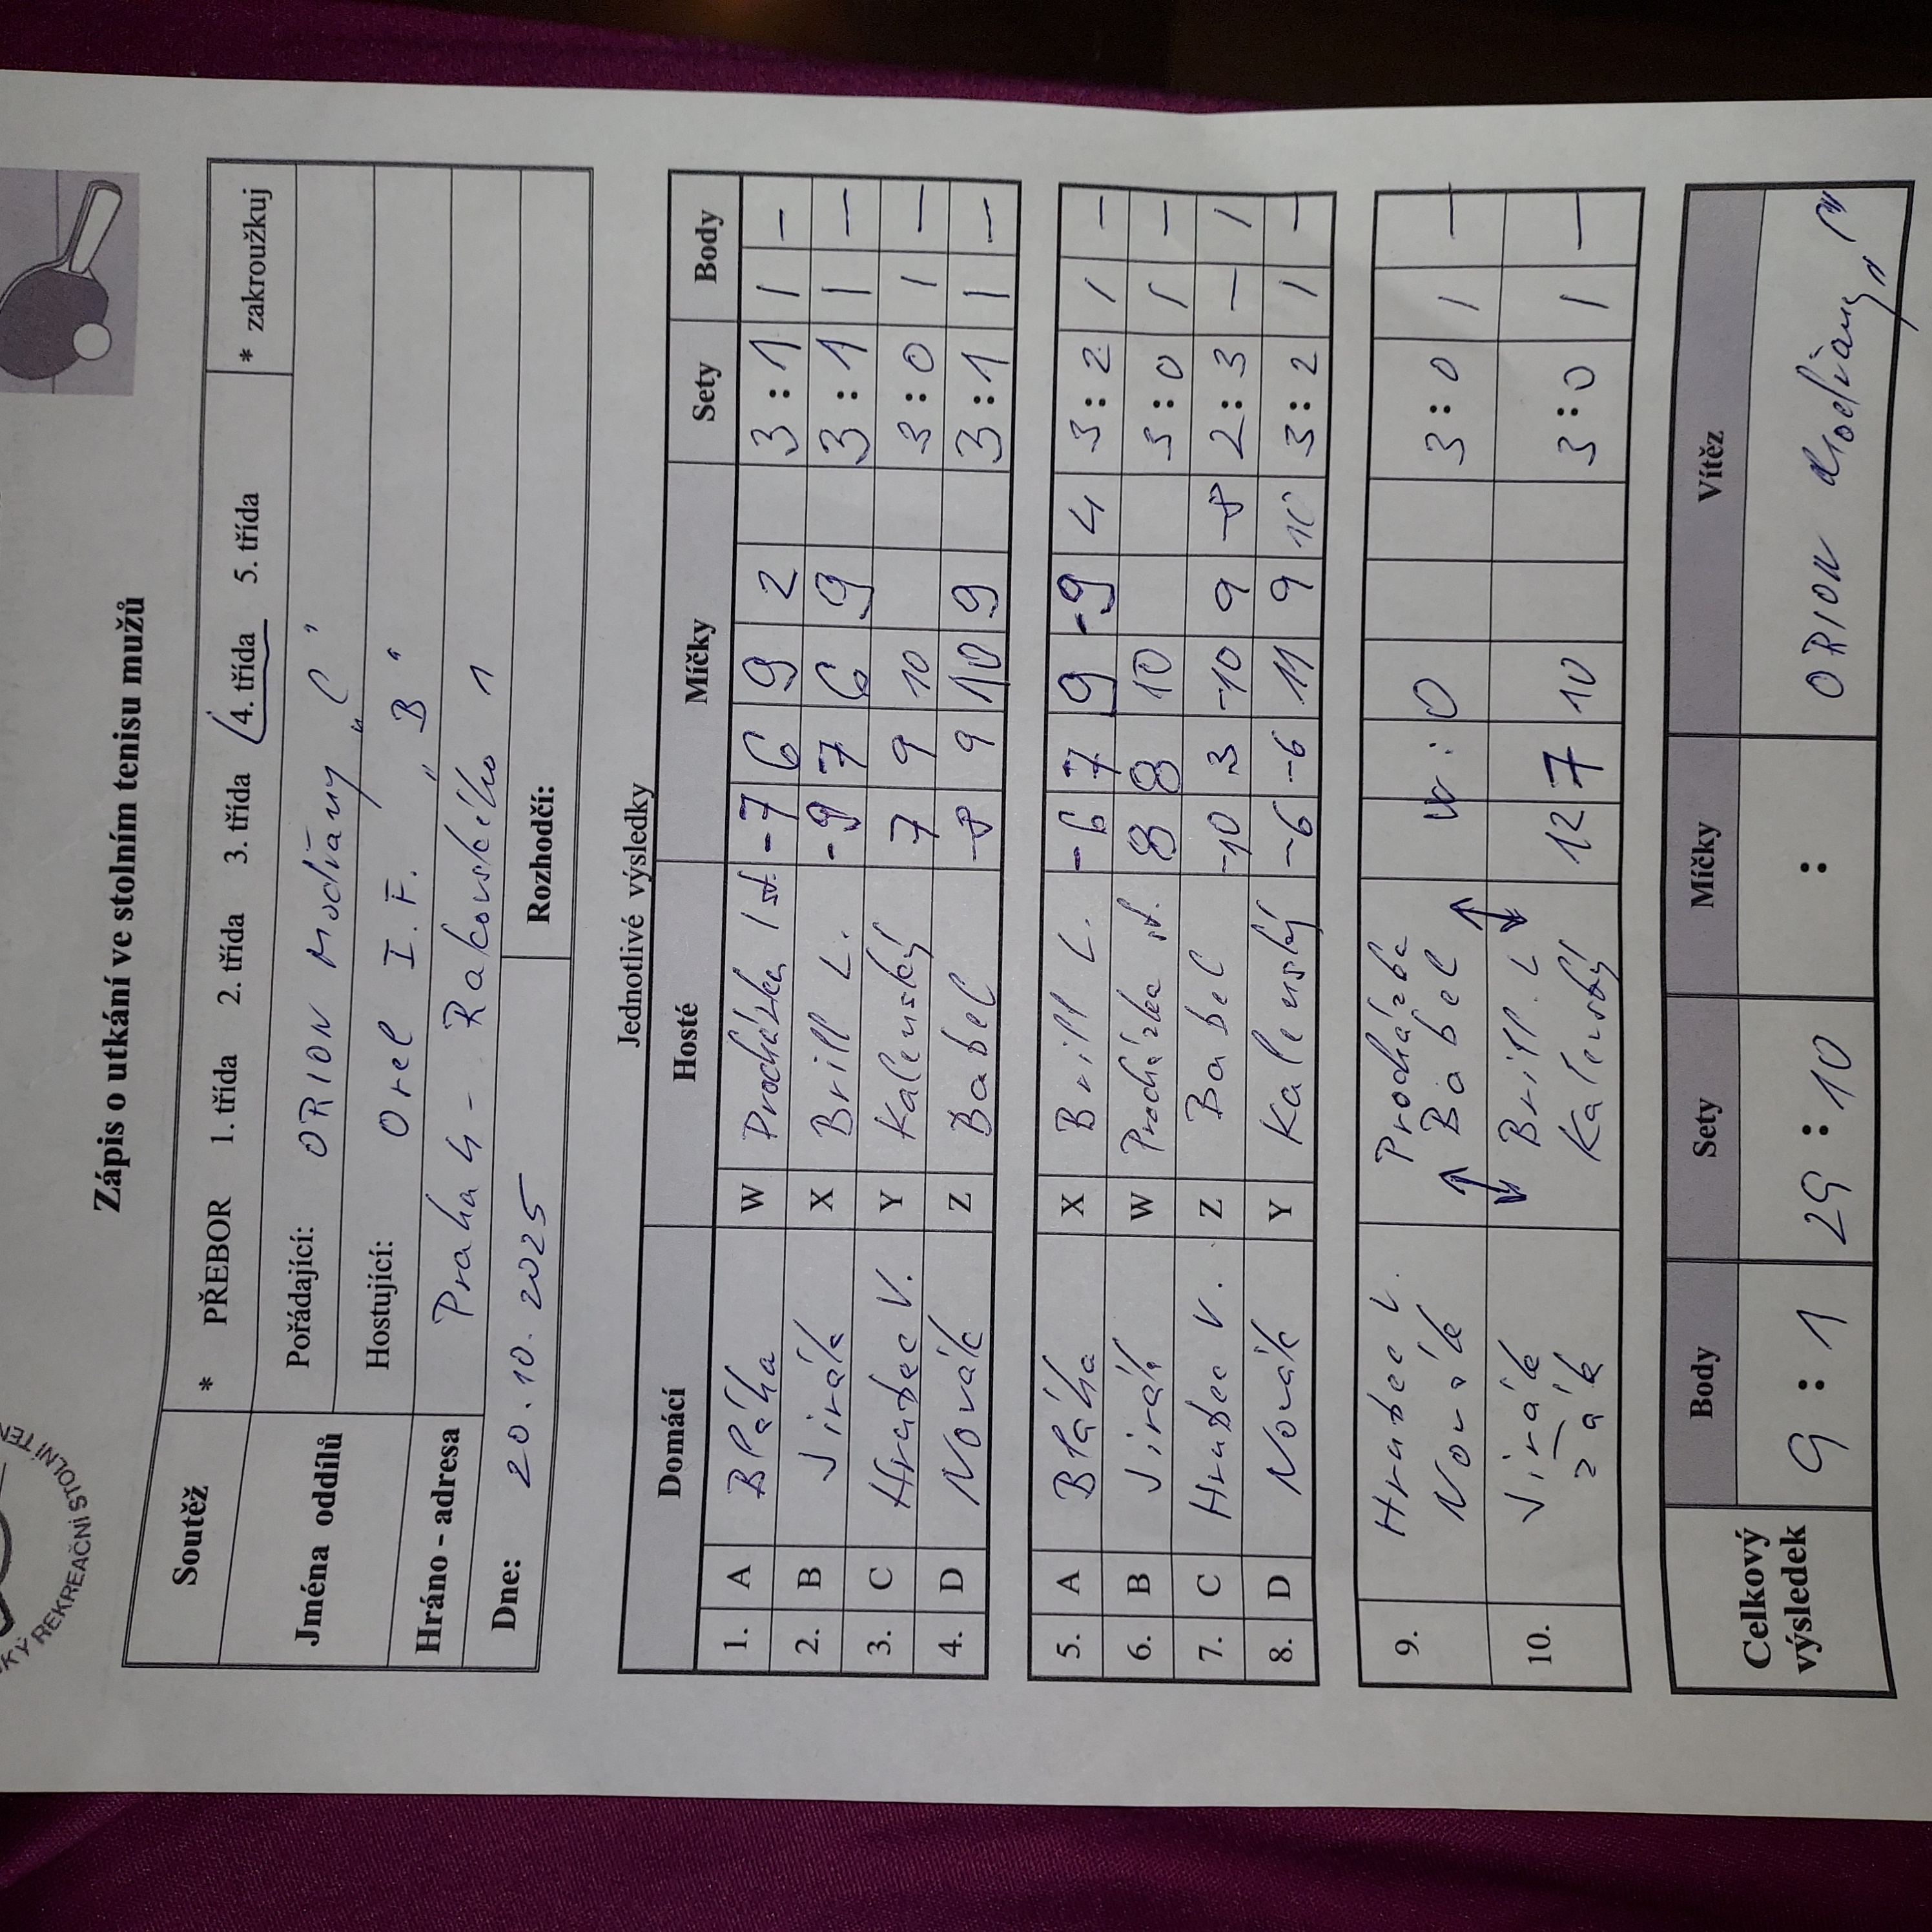 REKREAČNÍ STOLNÍ TEN
Zápis o utkání ve stolním tenisu mužů
Soutěž * PŘEBOR 1. třída 2. třída 3. třída 4. třída 5. třída * zakroužkuj
Jména oddílů Pořádající: ORION Modřany „C“
Hostující: Orel I. F. „B“
Hráno - adresa Praha 4 - Rakouského 1
Dne: 20.10.2025 Rozhodčí:
Jednotlivé výsledky
Domácí Hosté Míčky Sety Body
1. A Bláha W Procházka st. -7 6 9 2 3:1 1 –
2. B Jirák X Brill L. -9 7 6 9 3:1 1 –
3. C Hrubec V. Y Kalenský 7 9 10 3:0 1 –
4. D Novák Z Babel -8 9 10 9 3:1 1 –
5. A Bláha X Brill L. -6 7 9 -9 4 3:2 1 –
6. B Jirák W Procházka st. 8 8 10 3:0 1 –
7. C Hrubec V. Z Babel -10 3 -10 9 -8 2:3 – 1
8. D Novák Y Kalenský -6 -6 11 9 10 3:2 1 –
9. Hrubec V. Procházka W:0 3:0 1 –
Novák Babel
10. Jirák Brill L 12 7 10 3:0 1 –
Žák Kalenský
Celkový výsledek Body Sety Míčky Vítěz
9:1 29:10 : ORION Modřany